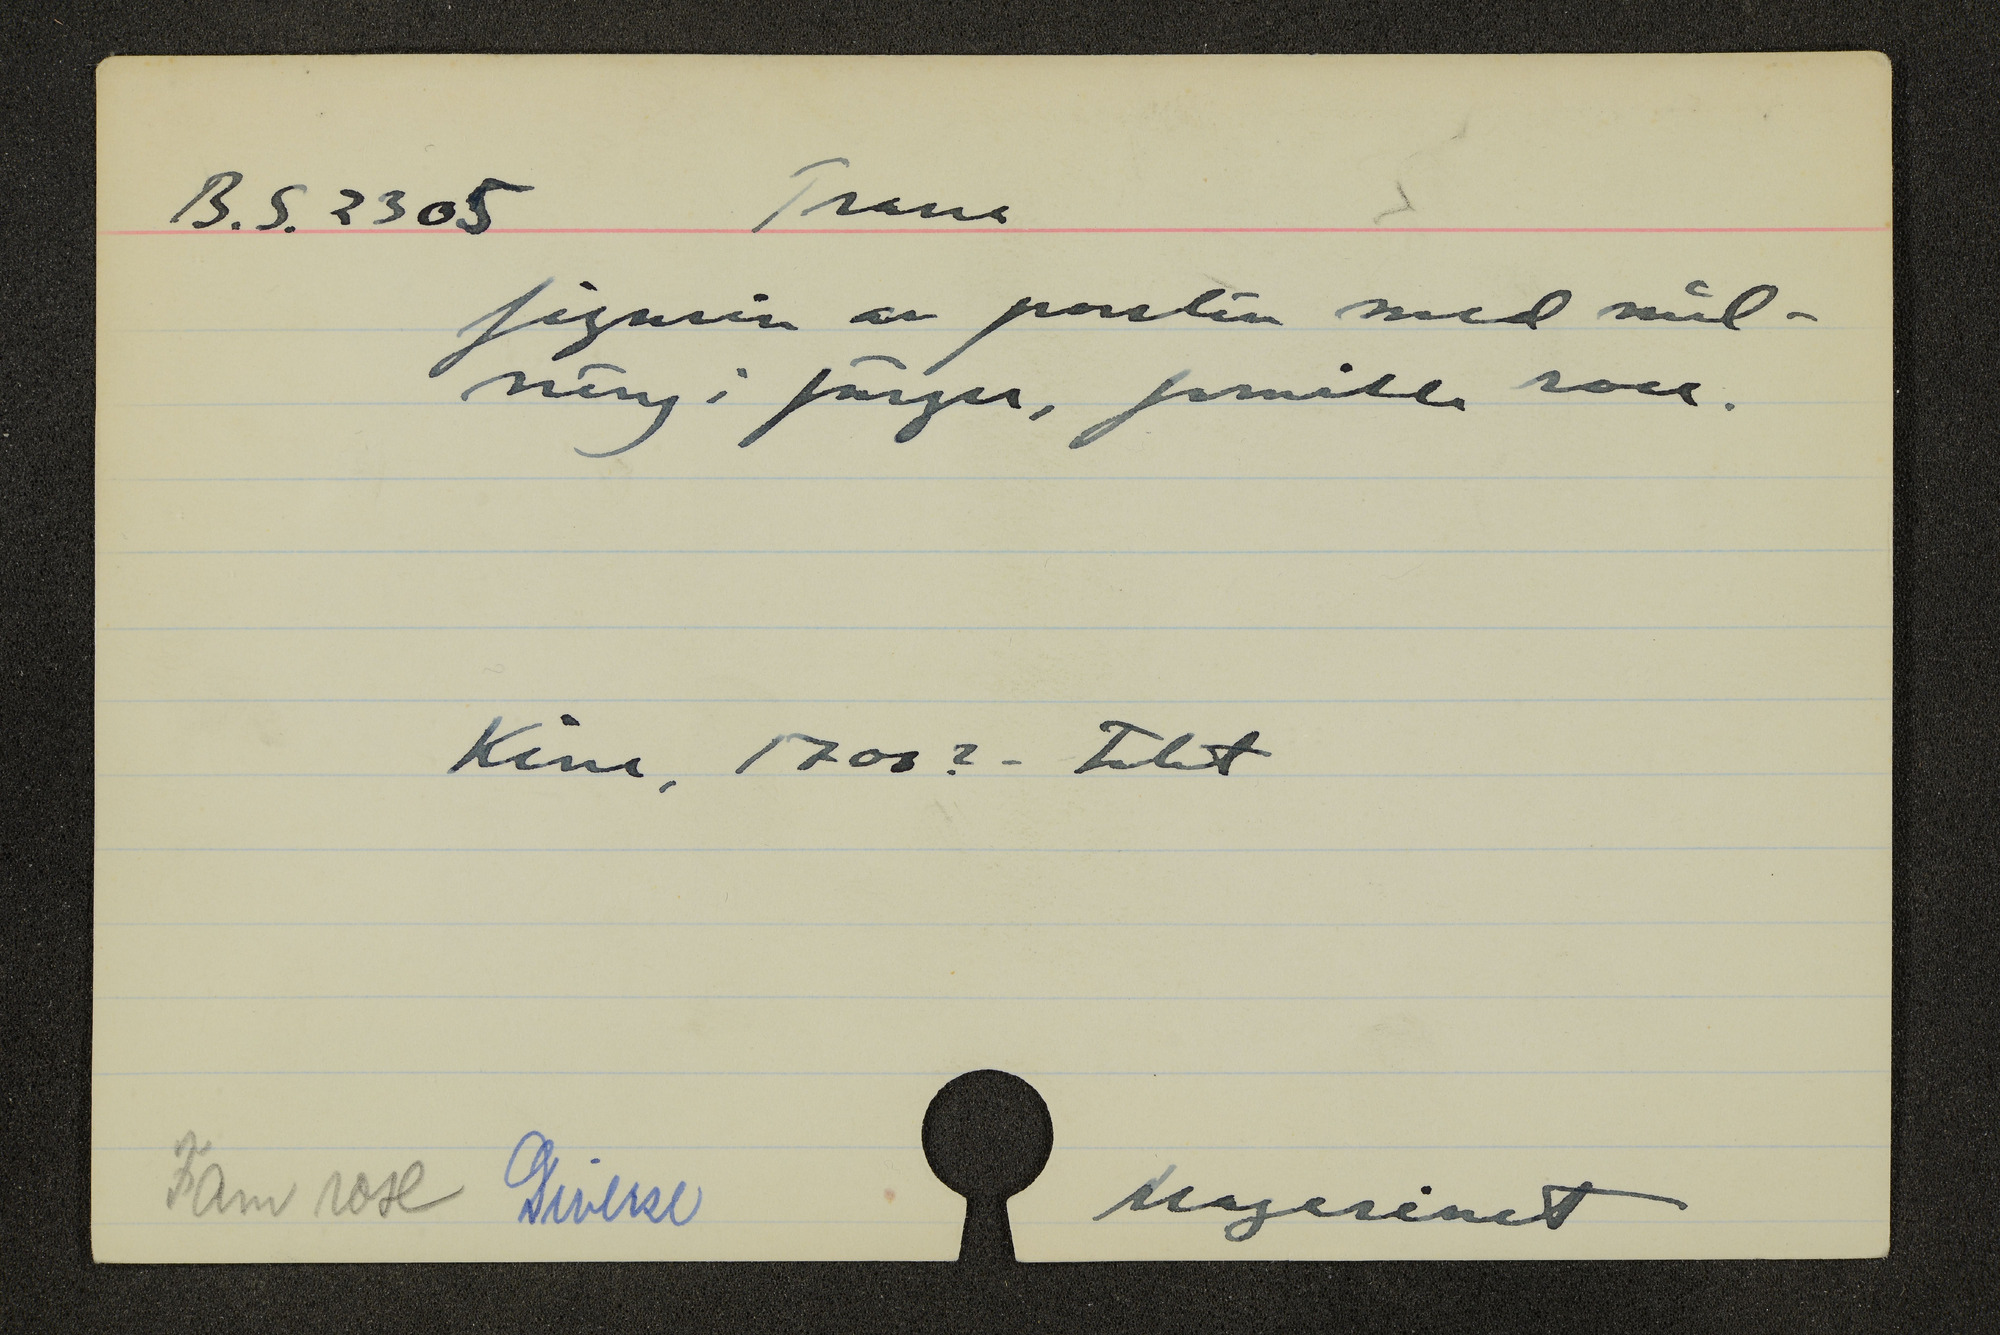 B.S. 2305 Trana
figurin av porslin med mål-
ning i färger, famille rose.
Kina, 1700? - Talet
Fam rose Diverse Magasinet